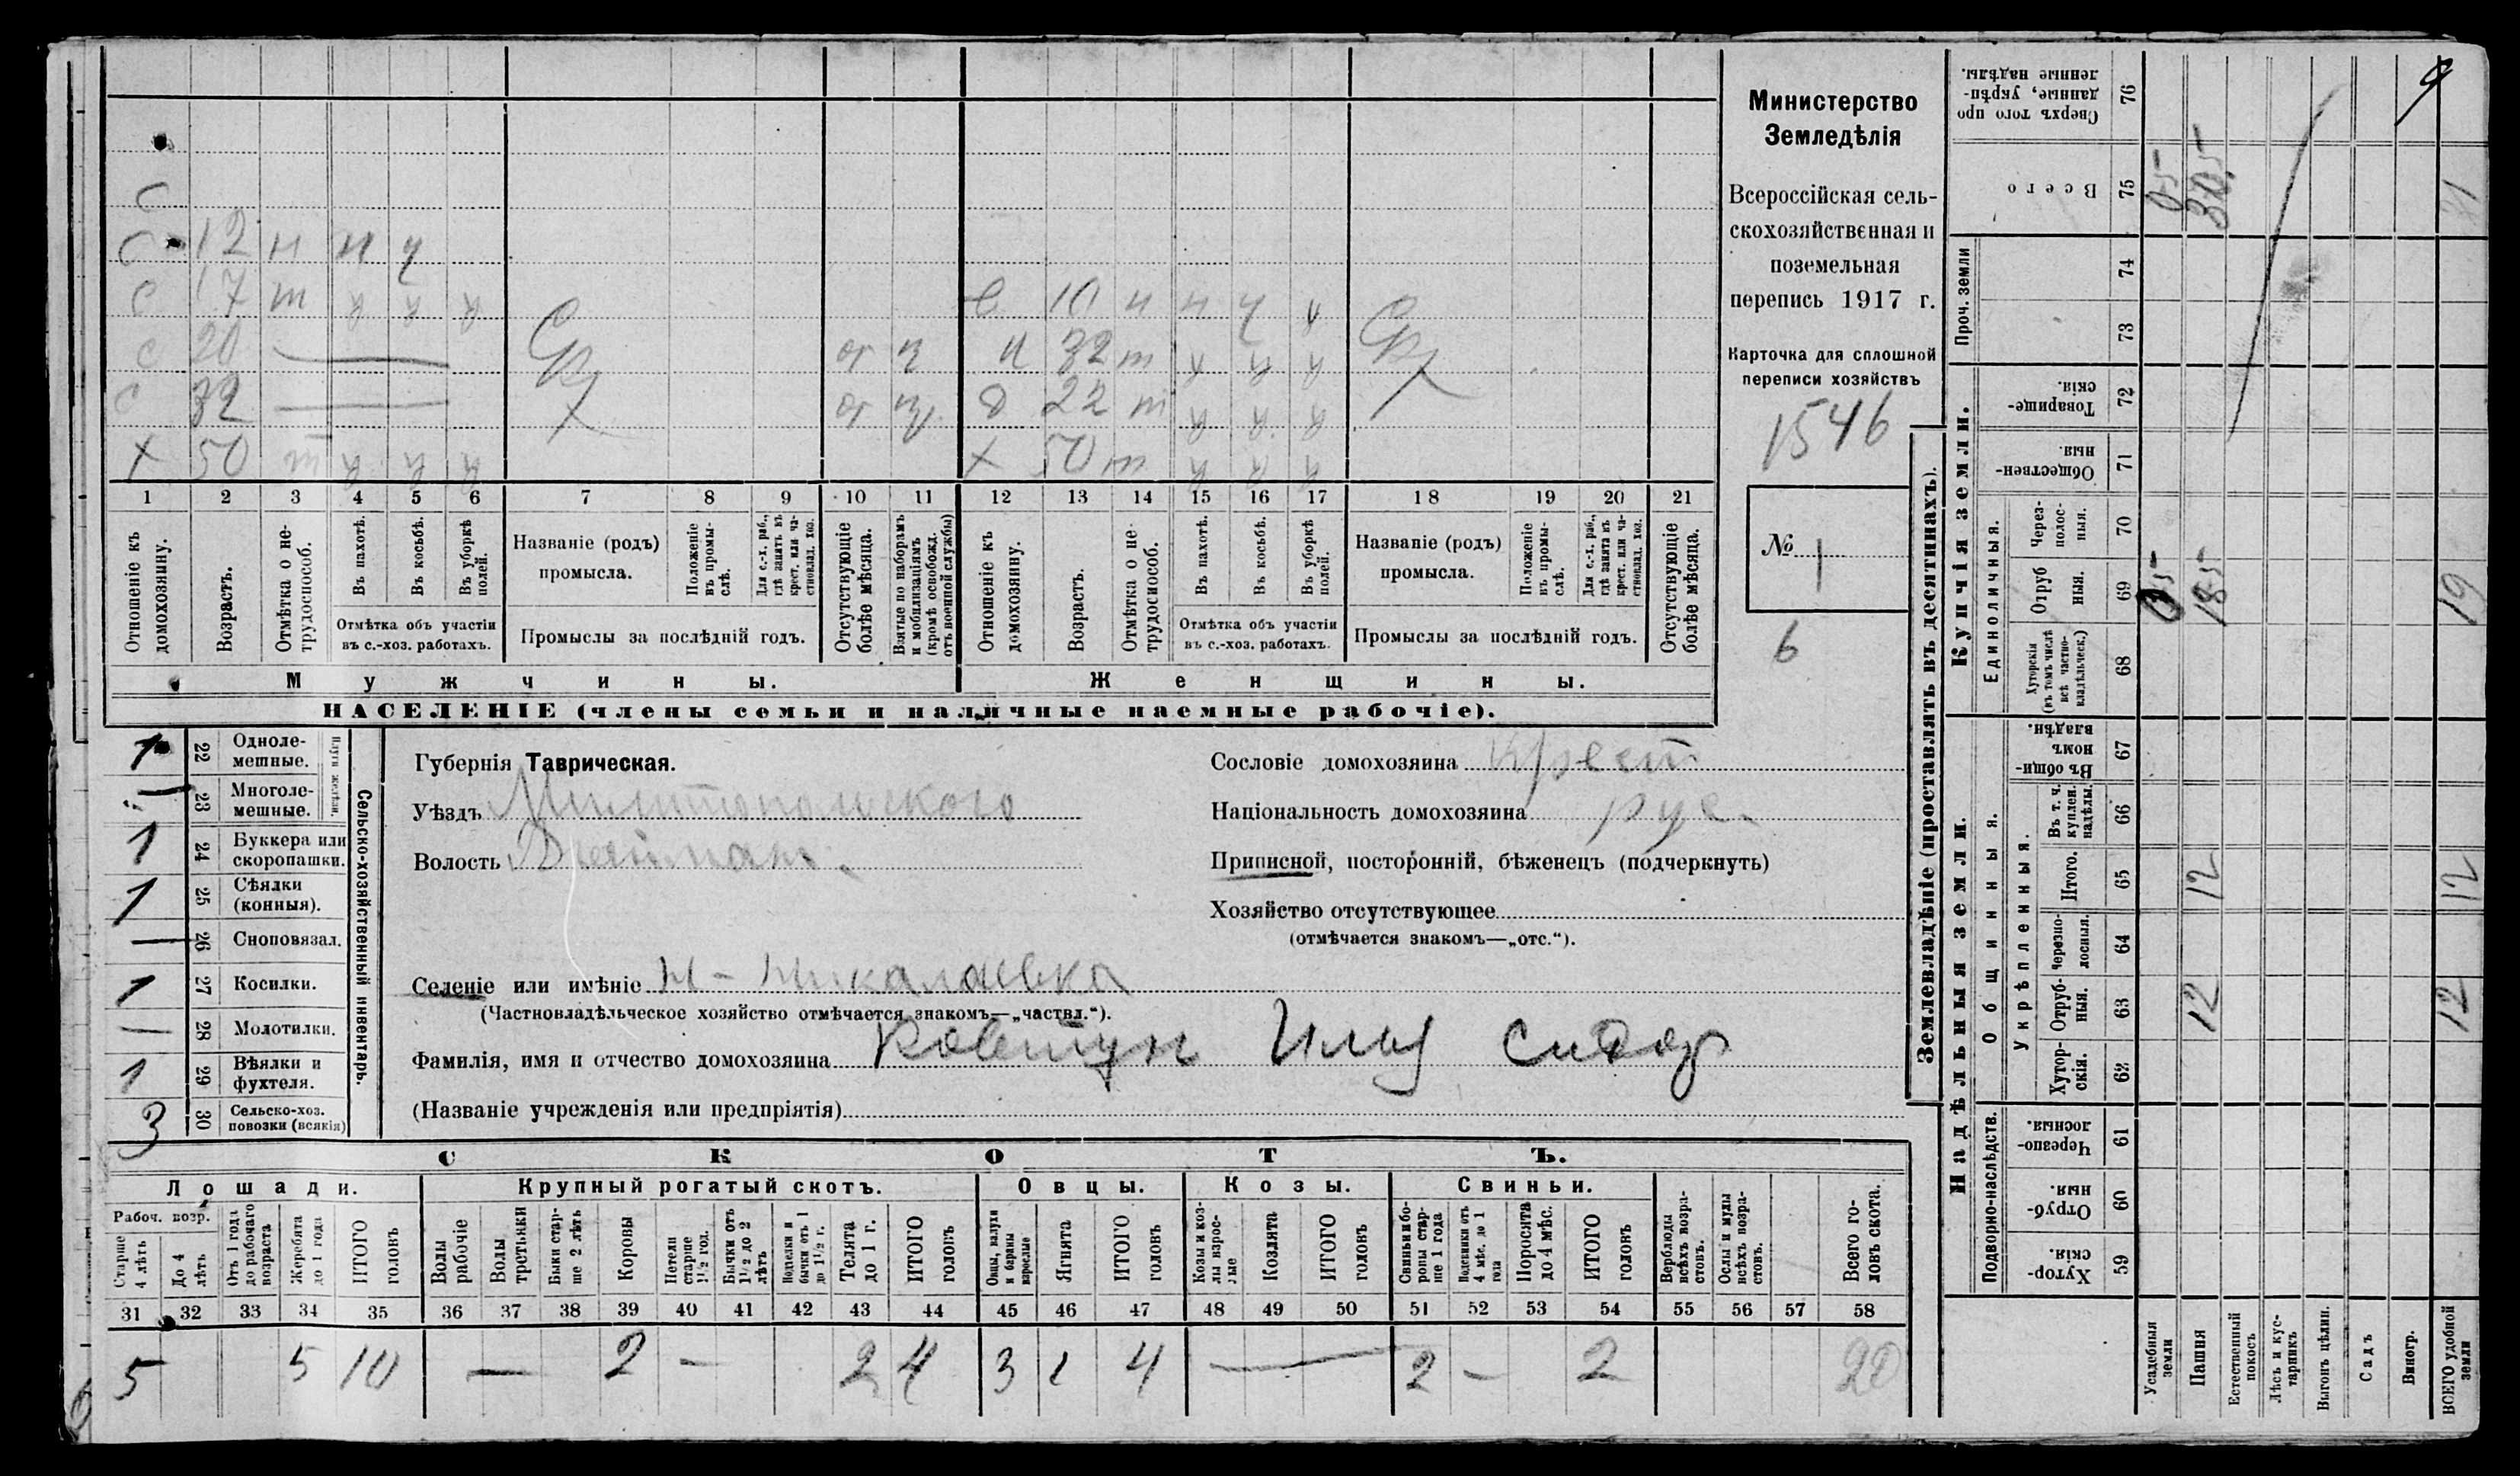 Министерство
Земледѣлія
Всероссійская сель-
скохозяйственная и
поземельная
перепись 1917 г.
Карточка для сплошной
переписи хозяйствъ
1546
№ 1
6
С
С 12 н н ч
С 17 т
С 20
С 32
х 50 т
10 н н ч ч
32 т
д 22 т
х 50 т
1 2 3 4 5 6 7 8 9 10 11 12 13 14 15 16 17 18 19 20 21
Отношеніе къ домохозяину.
Возрастъ.
Отмѣтка о не-трудоспособ.
Въ пахотѣ.
Въ косьбѣ.
Въ уборкѣ полей.
Отмѣтка объ участіи
въ с.-хоз. работахъ.
Названіе (родъ)
промысла.
Положеніе въ промы-слѣ.
Для с.-х. раб., гдѣ занятъ въ крест. или ча-стновлад. хоз.
Промыслы за послѣдній годъ.
Отсутствующіе болѣе мѣсяца.
Взятые по наборамъ и мобилизаціямъ (кромѣ освобожд. отъ военной службы)
Отношеніе къ домохозяину.
Возрастъ.
Отмѣтка о не-трудоспособ.
Въ пахотѣ.
Въ косьбѣ.
Въ уборкѣ полей.
Отмѣтка объ участіи
въ с.-хоз. работахъ.
Названіе (родъ)
промысла.
Положеніе въ промы-слѣ.
Для с.-х. раб., гдѣ занята въ крест. или ча-стновлад. хоз.
Промыслы за послѣдній годъ.
Отсутствующіе болѣе мѣсяца.
Мужчины.
Женщины.
НАСЕЛЕНІЕ (члены семьи и наличные наемные рабочіе).
Сельско-хозяйственный инвентарь.
1 22 Одноле-мешные.
23 Многоле-мешные.
1 24 Буккера или скоропашки.
1 25 Сѣялки (конныя).
— 26 Сноповязал.
1 27 Косилки.
— 28 Молотилки.
1 29 Вѣялки и фухтеля.
3 30 Сельско-хоз. повозки (всякія)
Губернія Таврическая.
Уѣздъ Мелитопольского
Волость
Сословіе домохозяина Крест
Національность домохозяина рус.
Приписной, посторонній, бѣженецъ (подчеркнуть)
Хозяйство отсутствующее
(отмѣчается знакомъ—„отс.“).
Селеніе или имѣніе Н-Николаевка
(Частновладѣльческое хозяйство отмѣчается знакомъ—„частвл.“).
Фамилія, имя и отчество домохозяина Ковтун Илья Сидор
(Названіе учрежденія или предпріятія)
СКОТЪ.
Лошади.
Крупный рогатый скотъ.
Овцы.
Козы.
Свиньи.
Рабоч. возр.
Старше 4 лѣтъ
До 4 лѣтъ
Отъ 1 года до рабочаго возраста
Жеребята до 1 года
ИТОГО головъ
Волы рабочіе
Волы третьяки
Быки стар-ше 2 лѣтъ
Коровы
Нетели старше 1½ год.
Бычки отъ 1½ до 2 лѣтъ
Телки и бычки отъ 1 до 1½ г.
Телята до 1 г.
ИТОГО головъ
Овцы, валухи и бараны взрослые
Ягнята
ИТОГО головъ
Козы и коз-лы взрос-лые
Козлята
ИТОГО головъ
Свиньи и бо-ровы стар-ше 1 года
Подсвинки отъ 4 мѣс. до 1 года
Поросята до 4 мѣс.
ИТОГО головъ
Верблюды всѣхъ возра-стовъ.
Ослы и мулы всѣхъ возра-стовъ.
Всего го-ловъ скота.
31 32 33 34 35 36 37 38 39 40 41 42 43 44 45 46 47 48 49 50 51 52 53 54 55 56 57 58
5 5 10 — 2 — 2 4 3 1 4 — 2 — 2 20
Землевладѣніе (проставлять въ десятинахъ).
Купчія земли.
Надѣльныя земли.
Сверхъ того про-данные, укрѣп-ленные надѣлы. 76
Всего 75
Проч. земли
74
73
Товарище-скія. 72
Обществен-ныя. 71
Единоличныя.
Через-полос-ныя. 70
Отруб-ныя. 69
Хуторскія (въ томъ числѣ всѣ частно-владѣльческ.) 68
Въ общин-номъ владѣн. 67
Общинныя.
Укрѣпленныя.
Въ т. ч. куплен. надѣлы. 66
Итого. 65
Черезпо-лосныя. 64
Отруб-ныя. 63
Хутор-скія. 62
Подворно-наслѣдств.
Черезпо-лосныя. 61
Отруб-ныя. 60
Хутор-скія. 59
Усадебныя земли
Пашня
Естественный покосъ
Лѣсъ и кус-тарникъ
Выгонъ цѣлин.
Садъ
Виногр.
ВСЕГО удобной земли
05 305 31
05 185 19
12 12
12 12
9